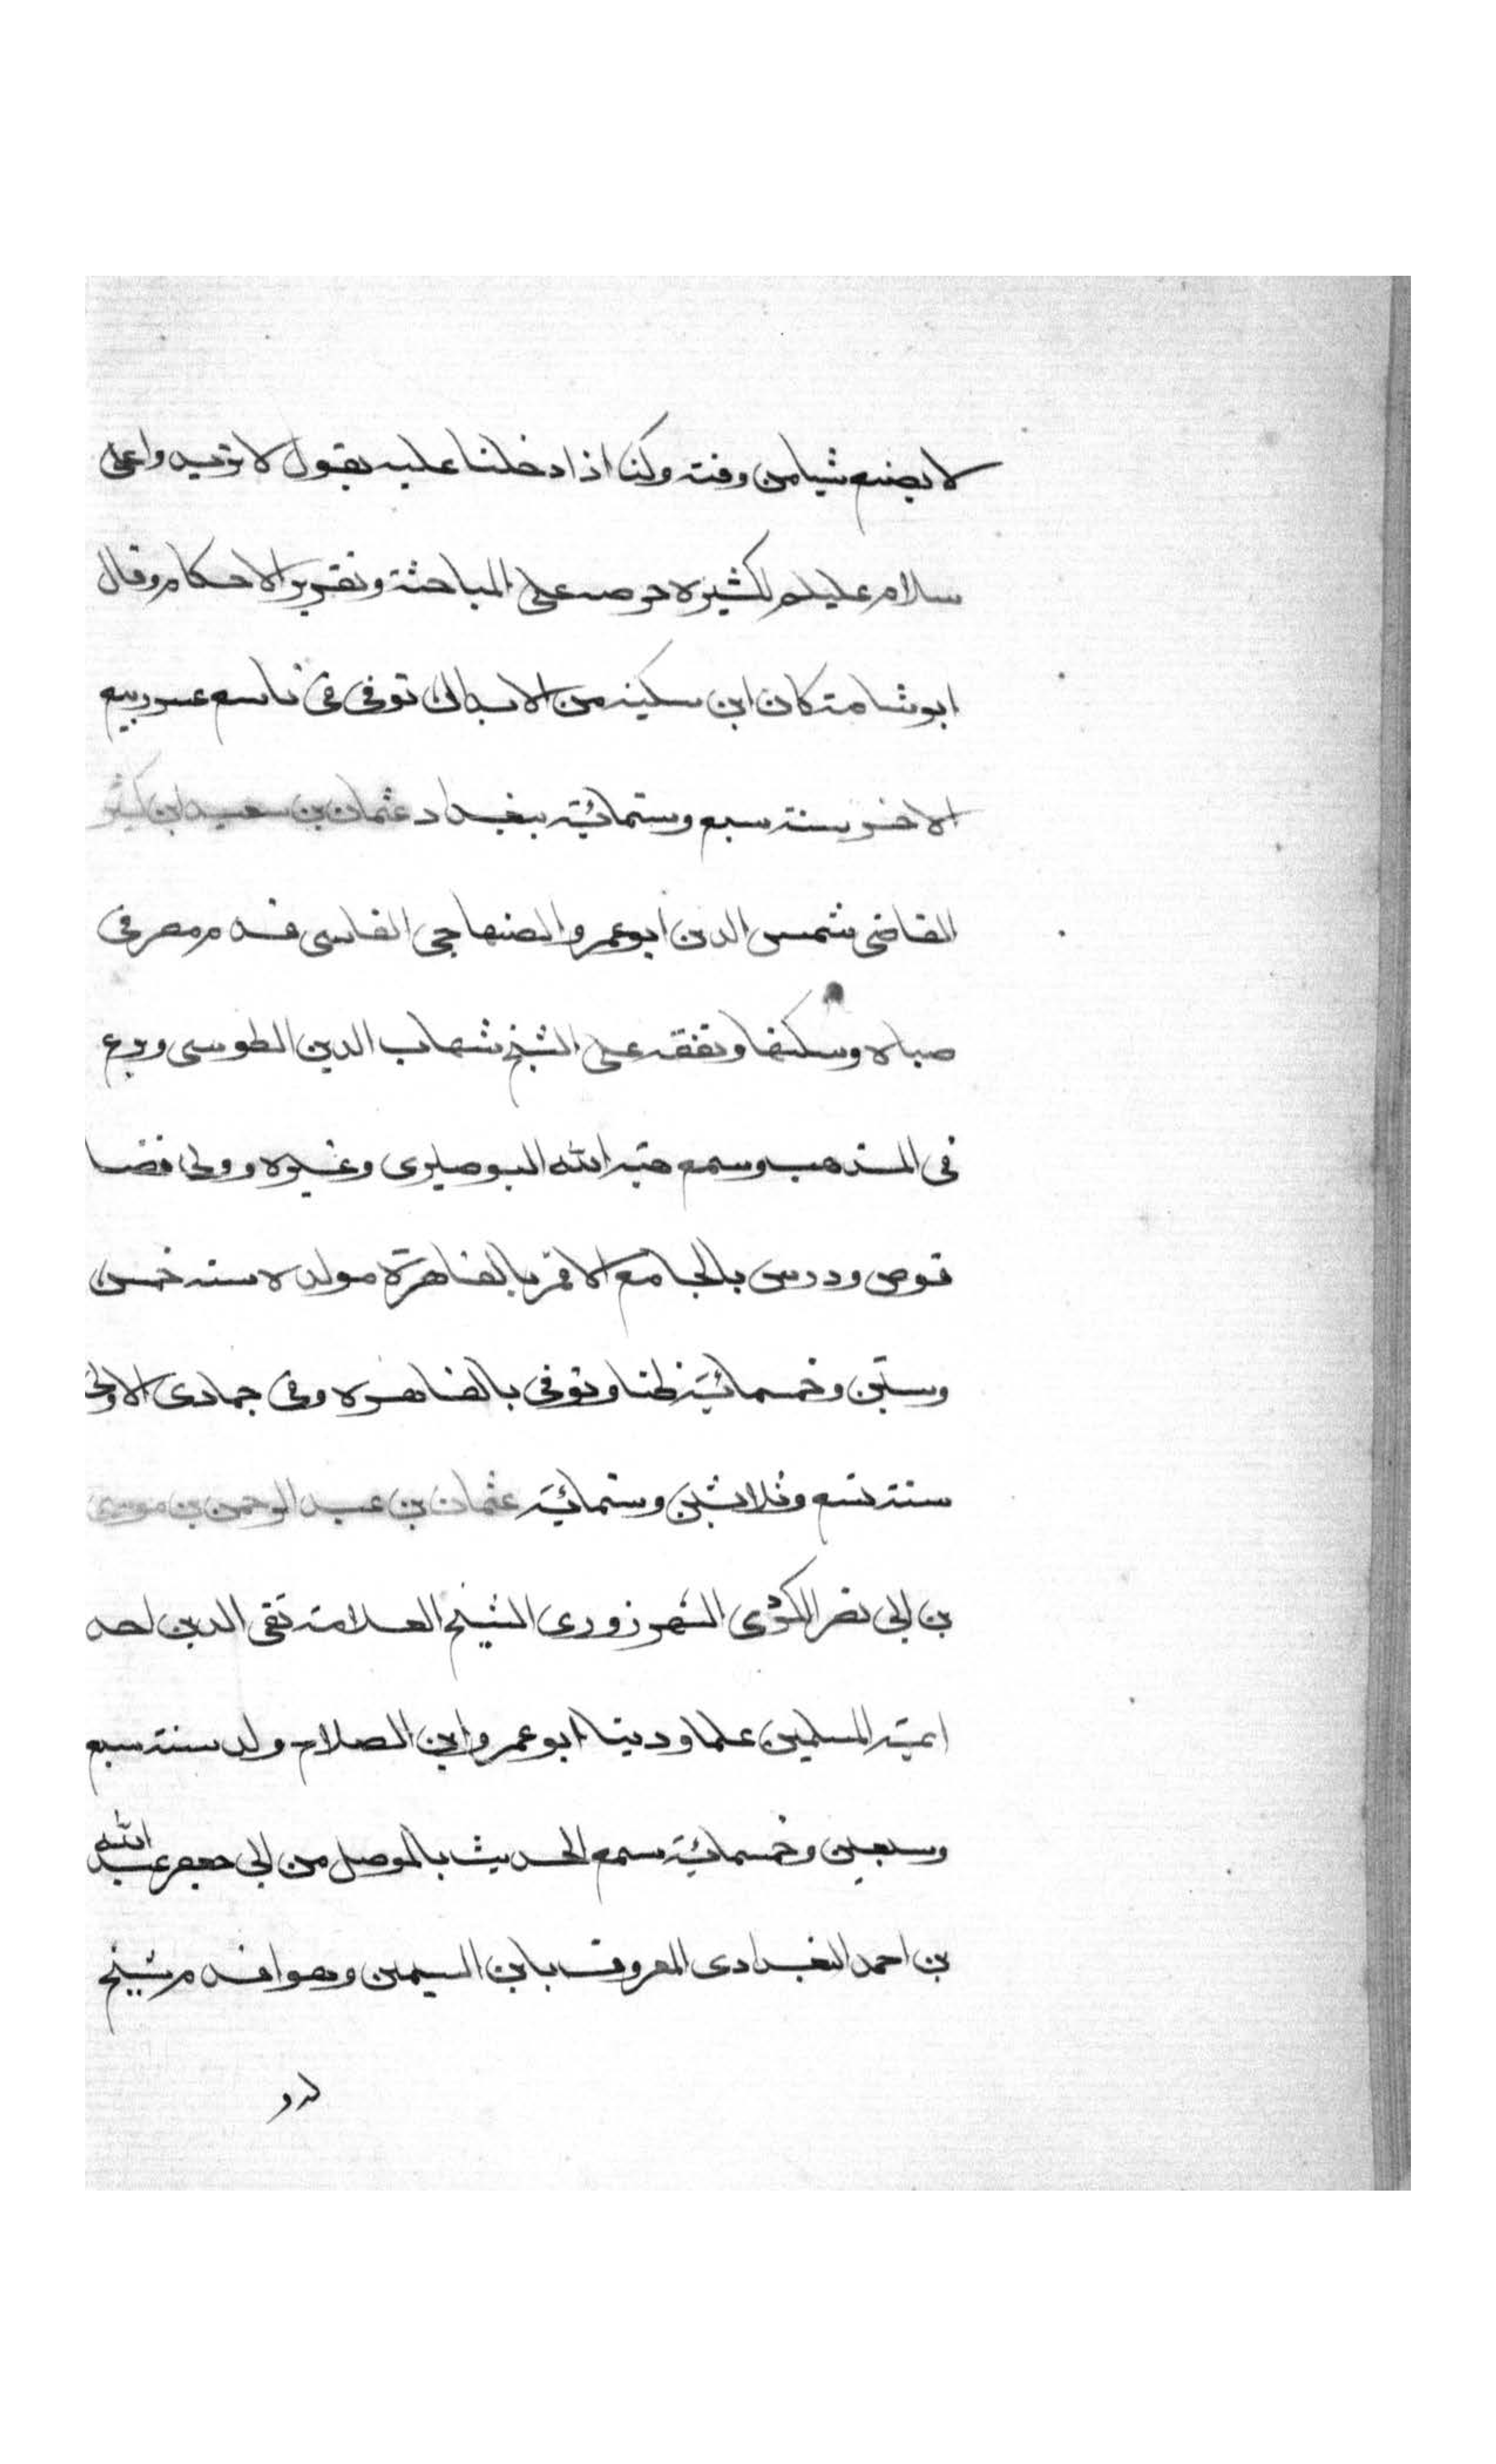 لا يضيع شيا من وقته وكنا اذا دخلنا عليه يقول لا تزيدوا على
سلام عليكم لكثيرة حرصه على المباحثة وتقرير الاحكام وقال
ابو شامة كان ابن سكينه من الابدال توفى فى تاسع عشر ربيع
الاخر سنة سبع وستمائية ببغداد عثمان بن سعيد ابن كثير
القاضى شمس الدين ابو عمرو الصنهاجى الفاسى قدم مصر فى
صباه وسكنها وتفقه على الشيخ شهاب الدين الطوسى وبرع
فى المذهب وسمع هبة الله البوصيرى وغيره وولى قضا
قوص ودرس بالجامع الاقمر بالقاهرة مولده سنه خمس
وستين وخمسمائية ظنا وتوفى بالقاهره وفى جمادى الاولى
سنة تسع وثلاثين وستمائية عثمان بن عبد الرحمن بن موسى
بن ابى نصر الكردى الشهرزورى الشيخ العلامة تقى الدين احد
ايمة المسلمين علما ودينا ابو عمرو ابن الصلاح ولد سنة سبع
وسبعين وخمسمائية سمع الحديث بالموصل من ابى جعفر عبيد الله
بن احمد البغدادى المعروف بابن السمين وهو اقدم شيخ